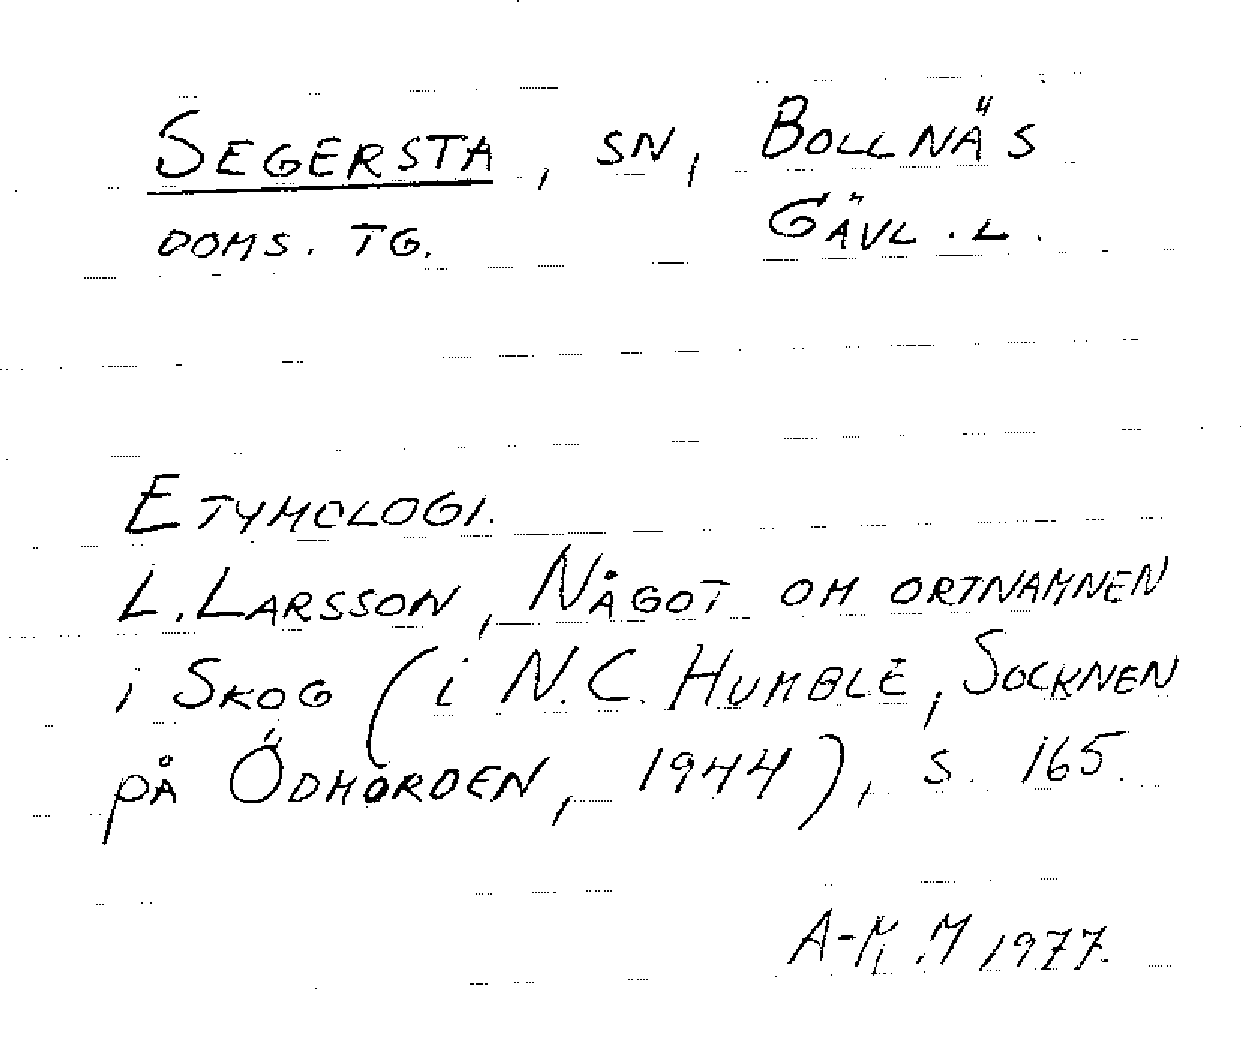 SEGERSTA, SN, BOLLNÄS
DOMS. TG. GÄVL. L.
ETYMOLOGI.
L. LARSSON, NÅGOT OM ORTNAMNEN
i SKOG (i N.C. HUMBLE, SOCKNEN
på ÖDMÅRDEN, 1944), s. 165.
A-M. M 1977